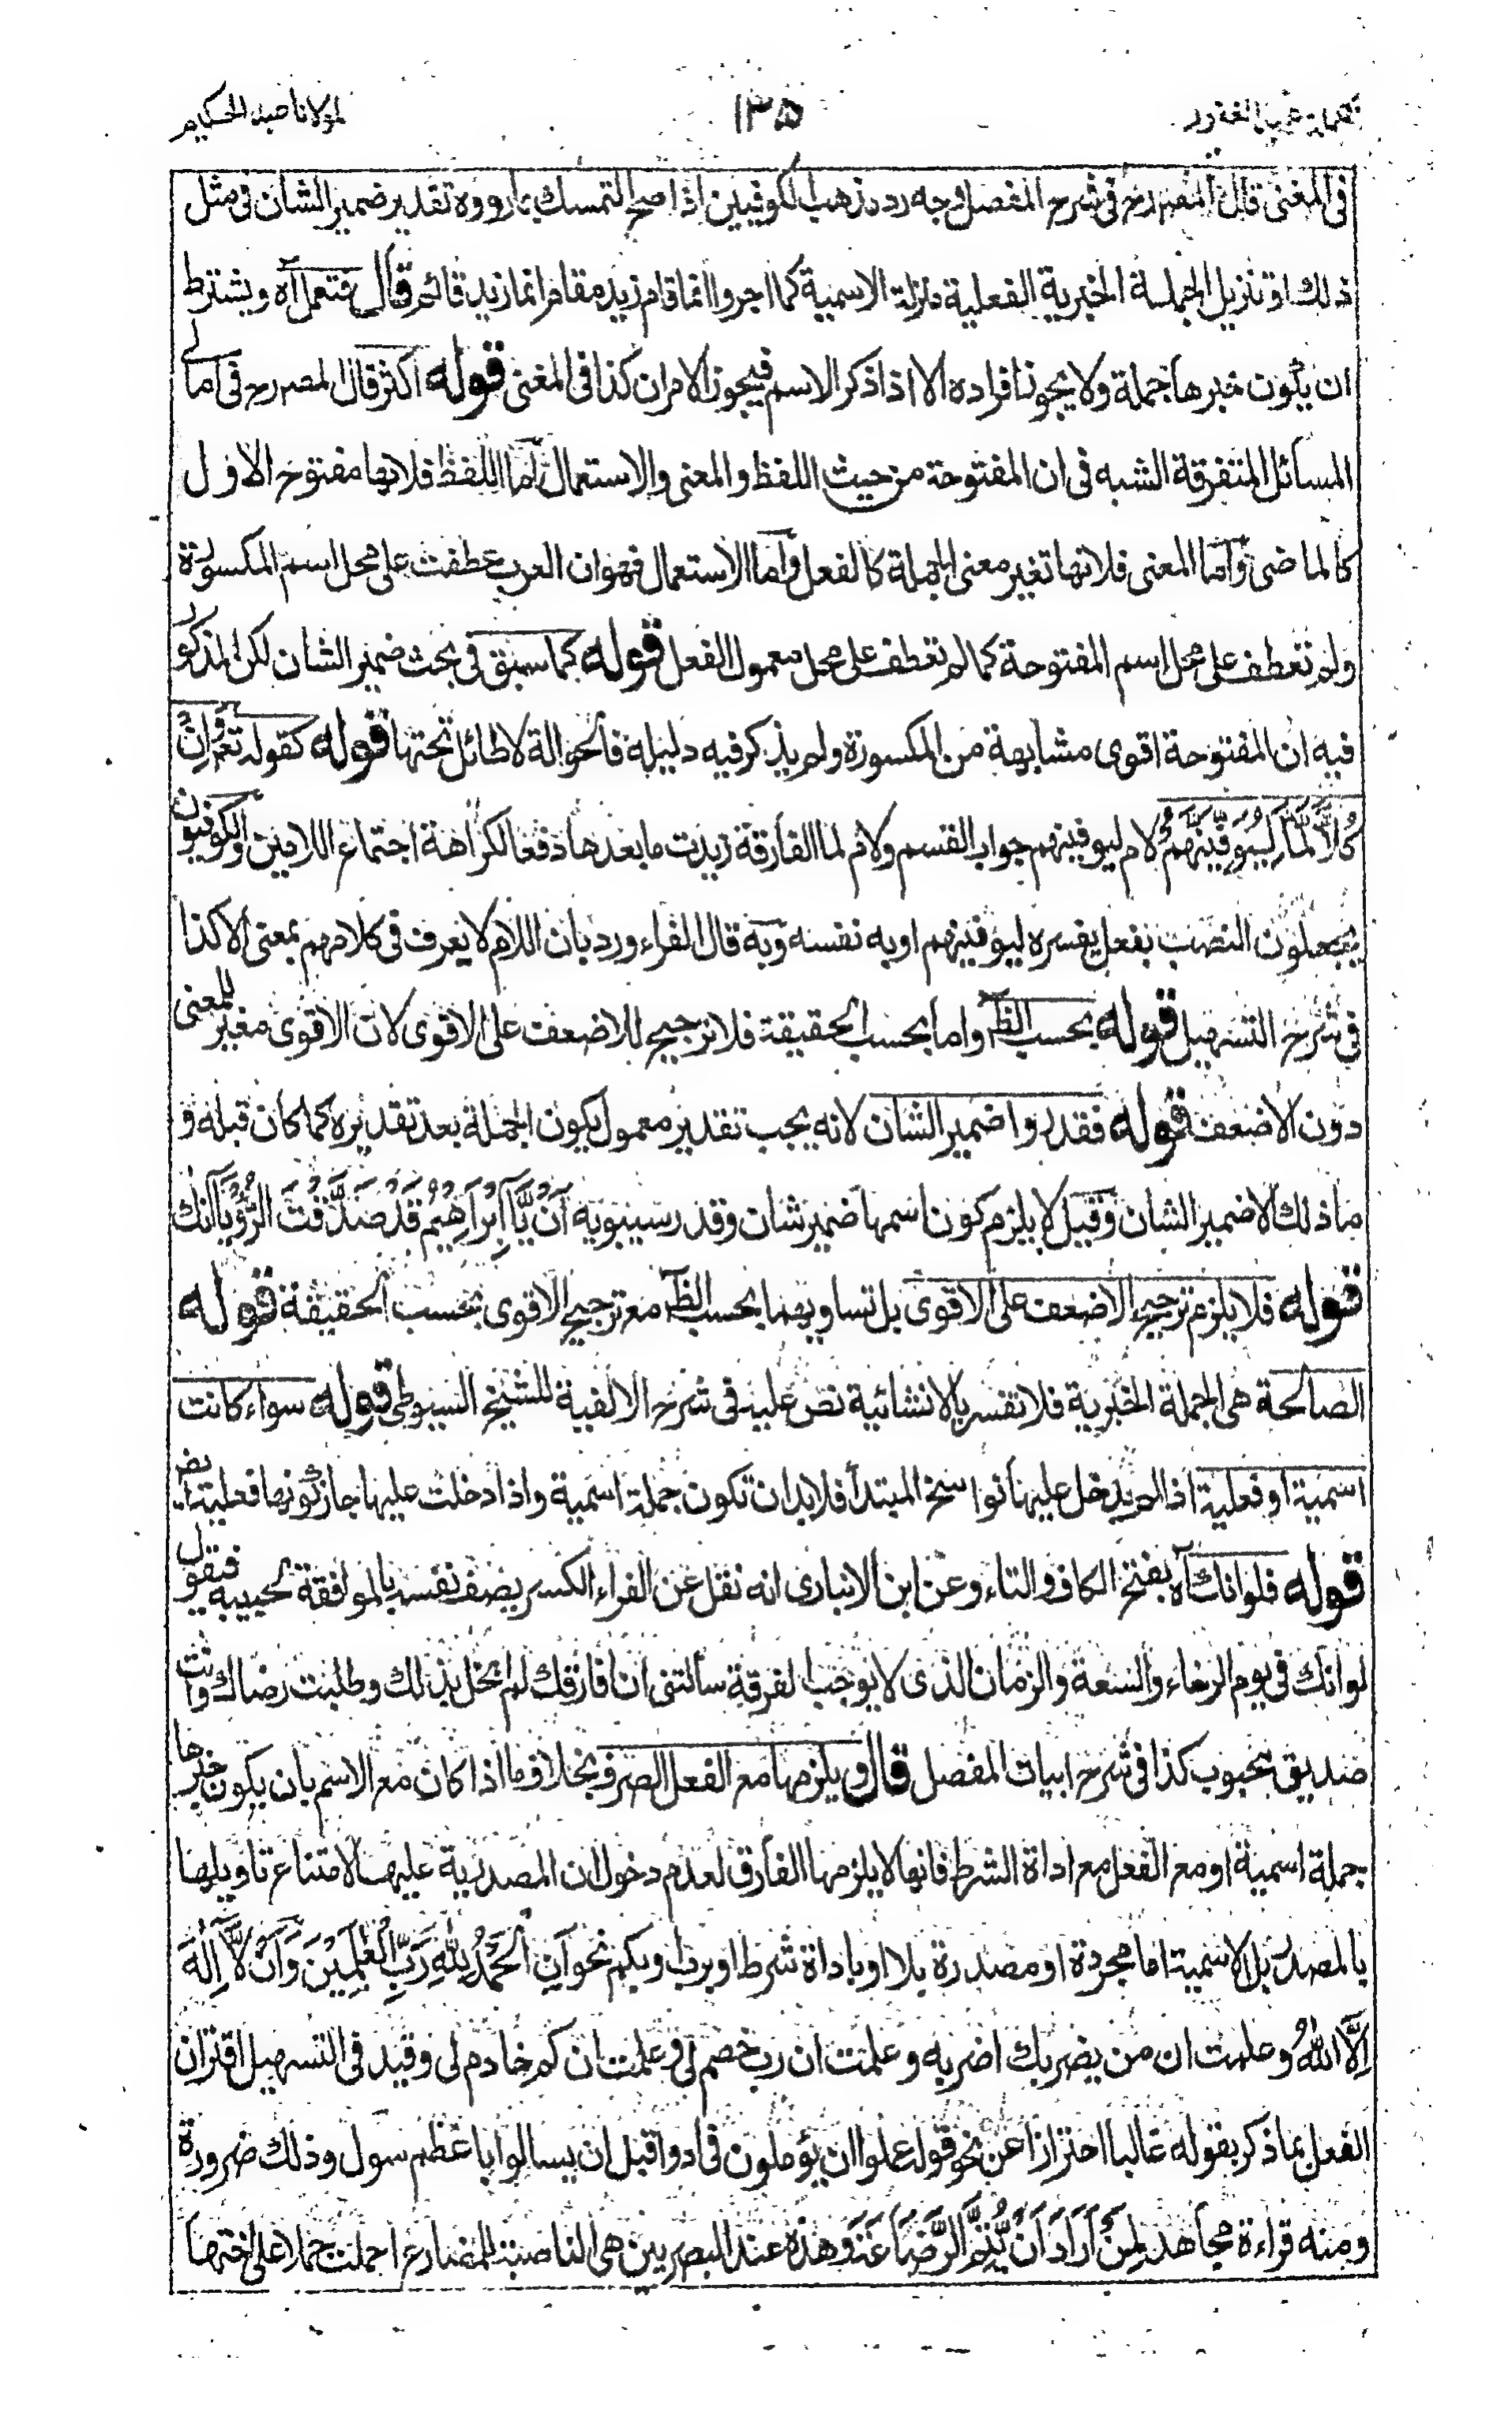 تكملة عبد الغفور
١٣٥
لمولانا عبد الحكيم
فى المغنى قال المصرح فى شرح المفصل وجه رد مذهب الكوفيين اذا صح التمسك بما رووه تقدير ضمير الشان فى مثل
ذلك او تنزيل الجملة الخبرية الفعلية منزلة الاسمية كما اجروا انما قام زيد مقام انما زيد قائم قال فتعمل آه ويشترط
ان يكون خبرها جملة ولا يجوز افراده الا اذا ذكر الاسم فيجوز الامران كذا فى المغنى قوله اكثر قال المصرح فى امالى
المسائل المتفرقة الشبه فى ان المفتوحة من حيث اللفظ والمعنى والاستعمال اما اللفظ فلانها مفتوح الاول
كالماضى واما المعنى فلانها تغير معنى الجملة كالفعل واما الاستعمال فهو ان العرب عطفت على محل اسم المكسورة
ولم تعطف على محل اسم المفتوحة كما لم تعطف على محل معمول الفعل قوله كما سبق فى بحث ضمير الشان لكن المذكور
فيه ان المفتوحة اقوى مشابهة من المكسورة ولم يذكر فيه دليله فالحوالة لا طائل تحتها قوله كقوله تعم وان
كُلًّا لَّمَّا لَيُوَفِّيَنَّهُمْ لام ليوفينهم جواب القسم ولام لما الفارقة زيدت ما بعدها دفعا لكراهة اجتماع اللامين والكوفيون
يجعلون النصب بفعل يفسره ليوفينهم او به نفسه وبه قال الفراء ورد بان اللام لا يعرف فى كلامهم بمعنى الا كذا
فى شرح التسهيل قوله بحسب الظآ واما بحسب الحقيقة فلا ترجيح للاضعف على الاقوى لان الاقوى مغير للمعنى
دون الاضعف قوله فقدروا ضمير الشان لانه يجب تقدير معمول يكون الجملة بعد تقديره كما كان قبله و
ما ذلك الا ضمير الشان وقيل لا يلزم كون اسمها ضمير شان وقدر سيبويه اَنْ يَّا اِبْرَاهِيْمُ قَدْ صَدَّقْتَ الرُّؤْيَا انك
قوله فلا يلزم ترجيح الاضعف على الاقوى بل تساويهما بحسب الظآ مع ترجيح الاقوى بحسب الحقيقة قوله
الصالحة هى الجملة الخبرية فلا تفسر بالانشائية نص عليه فى شرح الالفية للشيخ السيوطى قوله سواء كانت
اسمية او فعلية اذا لم يدخل عليها نواسخ المبتدأ فلا بد ان تكون جملة اسمية واذا دخلت عليها جاز كونها فعلية ايضا
قوله فلو انك آه بفتح الكاف والتاء وعن ابن الانبارى انه نقل عن الفراء الكسر يصف نفسه بالموافقة لحبيبه فيقول
لو انك فى يوم الرخاء والسعة والزمان الذى لا يوجب الفرقة سألتنى ان افارقك لم ابخل بذلك وطلبت رضاك وانت
صديق محبوب كذا فى شرح ابيات المفصل قال ويلزمها مع الفعل الصرف بخلاف ما اذا كان مع الاسم بان يكون خبرها
جملة اسمية او مع الفعل مع اداة الشرط فانها لا يلزمها الفارق لعدم دخول ان المصدرية عليها لامتناع تاويلها
بالمصدر بل الاسمية اما مجردة او مصدرة بلا او باداة شرط او برب او بكم نحو اَنِ الْحَمْدُ لِلّٰهِ رَبِّ الْعٰلَمِيْنَ وَاَنْ لَّا اِلٰهَ
اِلَّا اللّٰهُ وعلمت ان من يضربك اضربه وعلمت ان رب خصم لى وعلمت ان كم خادم لى وقيد فى التسهيل اقتران
الفعل بما ذكر بقوله غالبا احترازا عن نحو قوله علموا ان يؤملون فجادوا قبل ان يسالوا باعظم سول وذلك ضرورة
ومنه قراءة مجاهد لِمَنْ اَرَادَ اَنْ يُّتِمُّ الرَّضَاعَةَ وهذه عند البصريين هى الناصبة للمضارع اهملت حملا على اختها